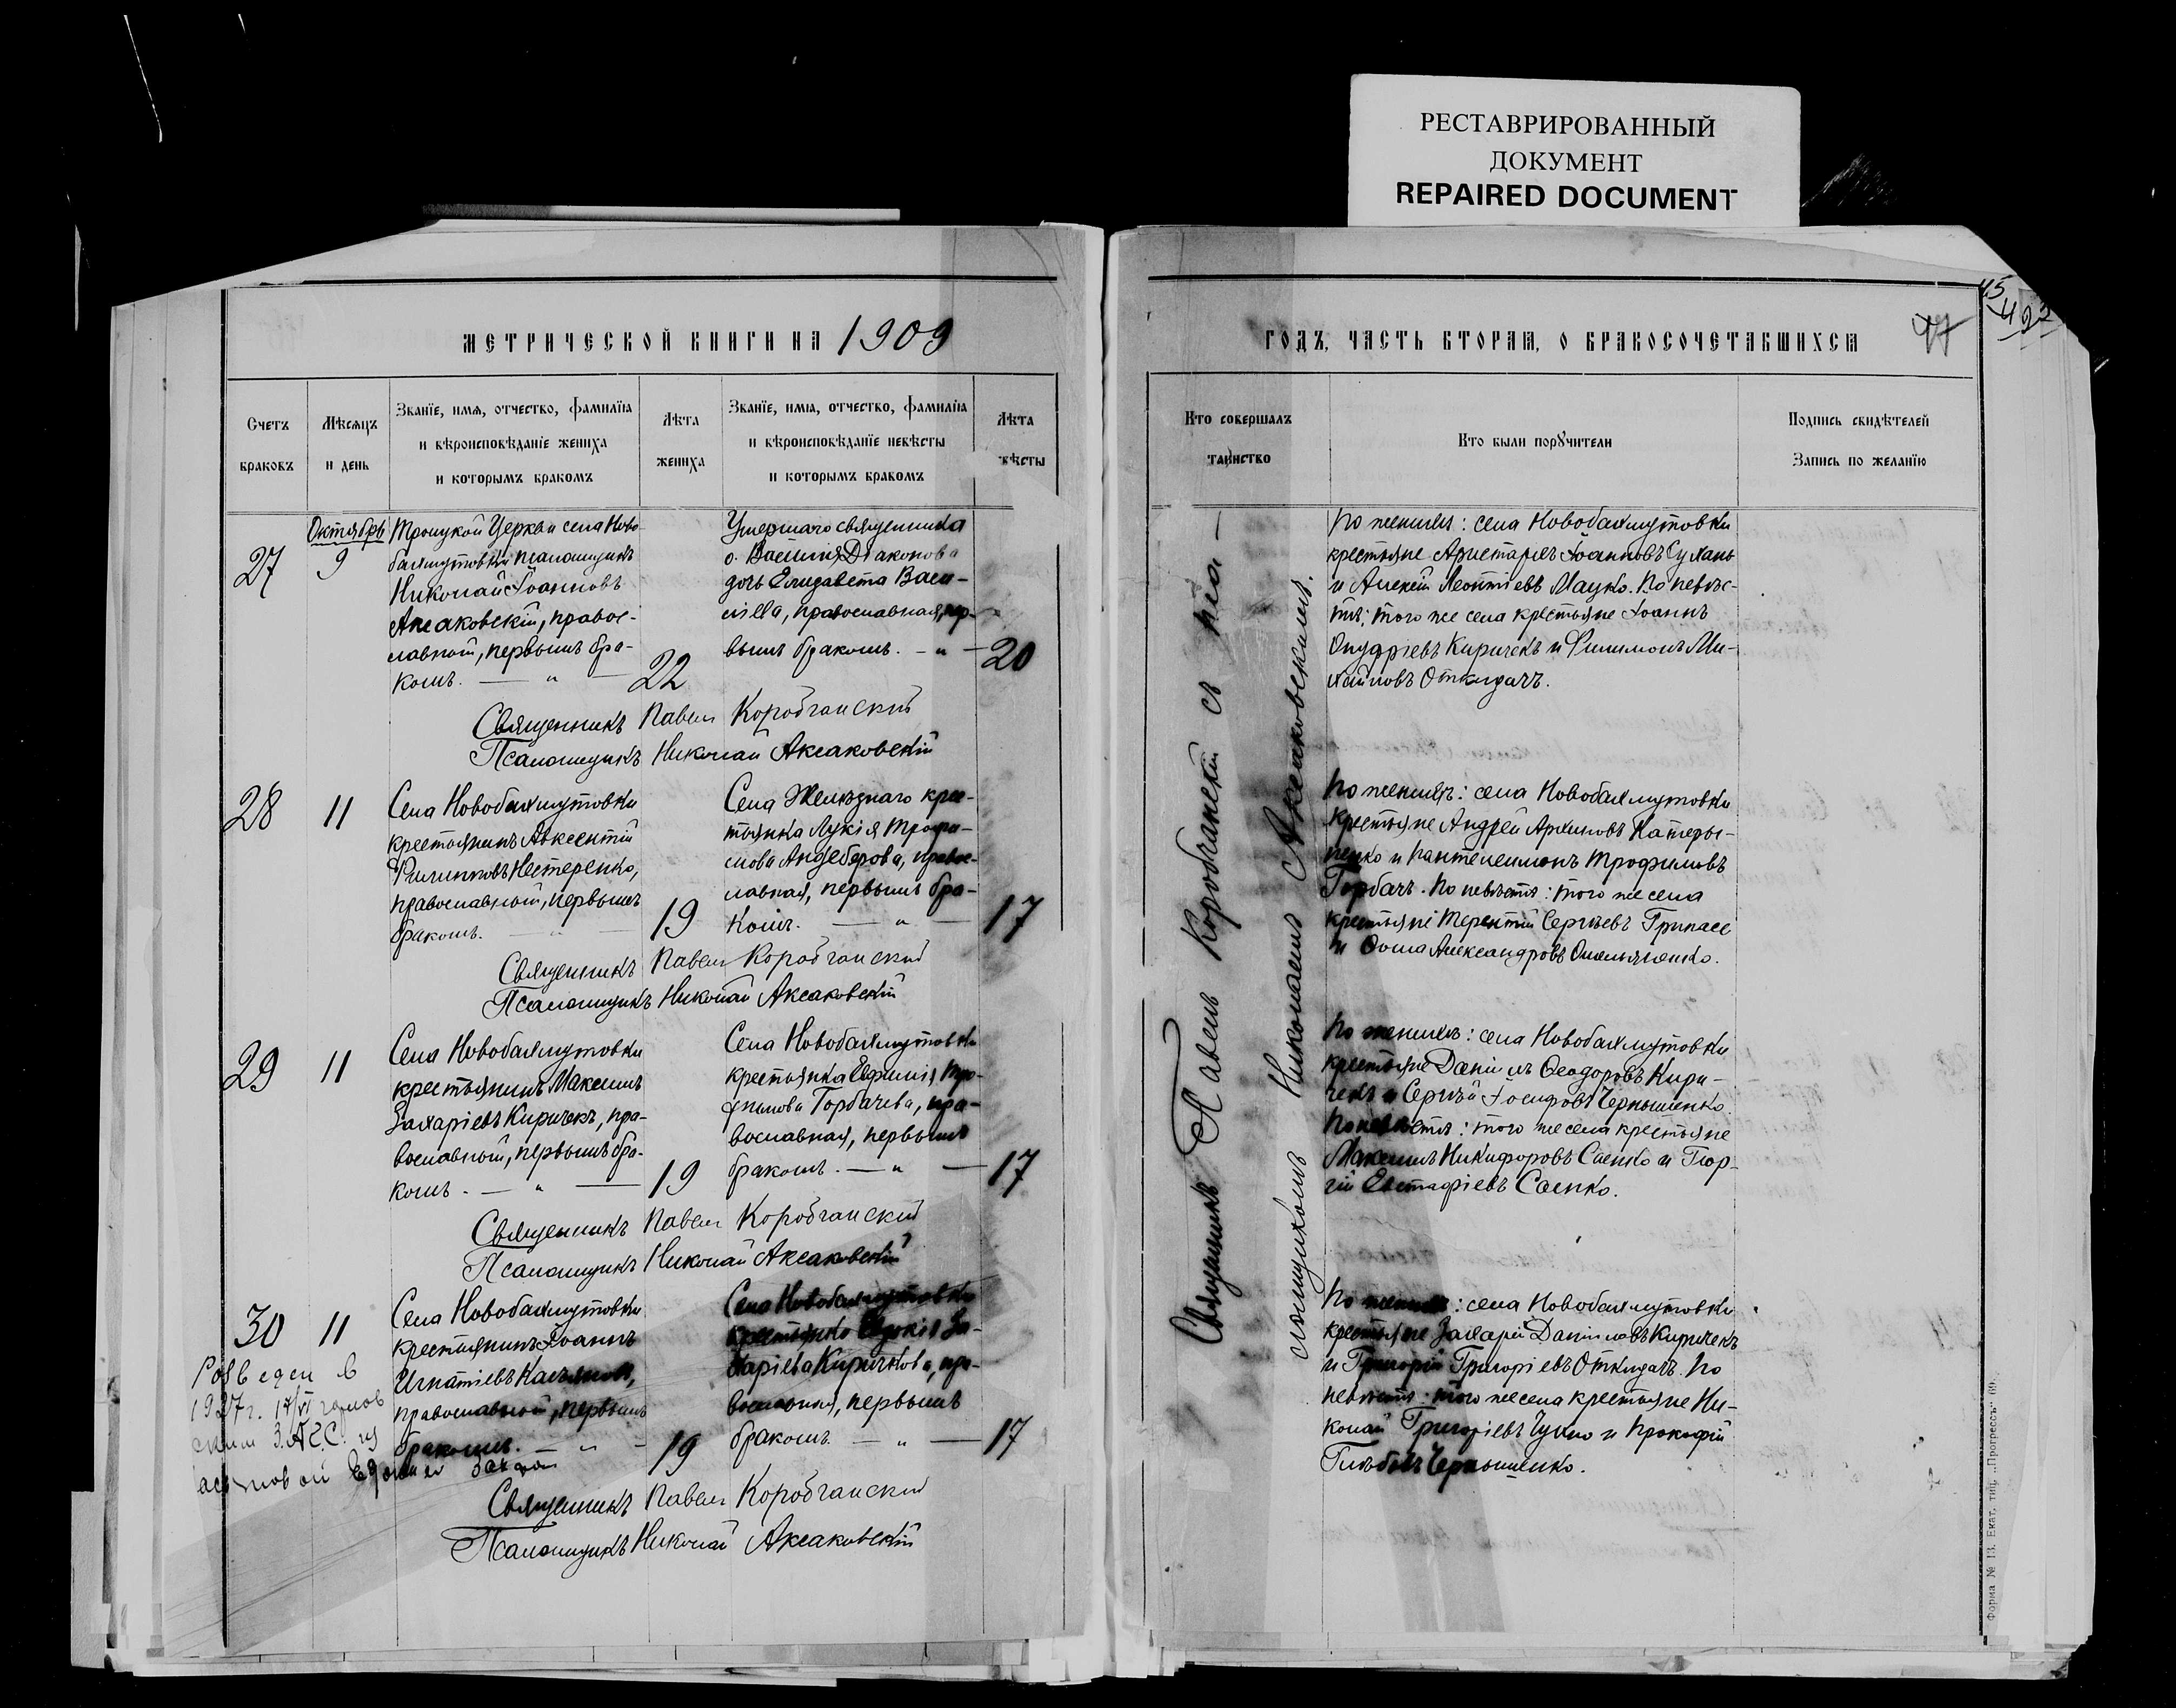 РЕСТАВРИРОВАННЫЙ
ДОКУМЕНТ
REPAIRED DOCUMENT
МЕТРИЧЕСКОЙ КНИГИ НА 1909
Счетъ
браковъ
Мѣсяцъ
и день
Званїе, имя, отчество, фамилїя
и вѣроисповѣданїе жениха
и которымъ бракомъ
Лѣта
жениха
Званїе, имя, отчество, фамилїя
и вѣроисповѣданїе невѣсты
и которымъ бракомъ
Лѣта
вѣсты
27
Октябрь
9
Троицкой Церкви села Ново-
бахмутовки псаломщикъ
Николай Іоанновъ
Аксаковскій, правос-
лавной, первымъ бра-
комъ. — " —
22
Умершаго священника
о. Василія Дьяконова
дочь Елизавета Васи-
ліева, православная, пер-
вымъ бракомъ. - " -
20
Священникъ Павелъ Коробчанскій
Псаломщикъ Николай Аксаковскій
28
11
Села Новобахмутовки
крестьянинъ Авксентій
Филипповъ Нестеренко,
православной, первымъ
бракомъ. — " —
19
Села Желѣзнаго крес-
тьянка Лукія Трофи-
мова, правос-
лавная, первымъ бра-
комъ. — " —
17
Священникъ Павелъ Коробчанскій
Псаломщикъ Николай Аксаковскій
29
11
Села Новобахмутовки
крестьянинъ Максимъ
Захаріевъ Киричекъ, пра-
вославной, первымъ бра-
комъ. — " —
19
Села Новобахмутовки
крестьянка Евфимія Тро-
фимова Горбачева, пра-
вославная, первымъ
бракомъ. — " —
17
Священникъ Павелъ Коробчанскій
Псаломщикъ Николай Аксаковскій
30
11
Села Новобахмутовки
крестьянинъ Іоаннъ
Игнатіевъ Касьяновъ,
православной, первымъ
бракомъ. — " —
19
Села Новобахмутовки
крестьянка Евдокія За-
харіева Киричкова, пра-
вославная, первымъ
бракомъ. — " —
17
Розведен в
1927 г. 17/VI
ским З.А.Г.С.
Священникъ Павелъ Коробчанскій
Псаломщикъ Николай Аксаковскій
ГОДЪ, ЧАСТЬ ВТОРАЯ, О БРАКОСОЧЕТАВШИХСЯ
Кто совершалъ
таинство
Кто были порꙋчители
Подпись свидѣтелей
Запись по желанїю
Священникъ Павелъ Коробчанскій съ пса-
ломщикомъ Николаемъ Аксаковскимъ.
По женихѣ: села Новобахмутовки
крестьяне Аристархъ Іоанновъ
и Алексѣй Леонтіевъ Мацко. По невѣс-
тѣ: того же села крестьяне Іоаннъ
Онуфріевъ Киричекъ и Филимонъ Ми-
хайловъ Откидачъ.
По женихѣ: села Новобахмутовки
крестьяне Андрей Архиповъ Катеры-
ненко и Пантелеимонъ Трофимовъ
Горбачъ. По невѣстѣ: того же села
крестьяне Терентій Сергѣевъ Грипасс
и Ѳома Александровъ Омельяненко.
По женихѣ: села Новобахмутовки
крестьяне Даніилъ Ѳеодоровъ Кири-
чекъ и Сергѣй Іосифовъ Чернышенко.
По невѣстѣ: того же села крестьяне
Максимъ Никифоровъ Саенко и Геор-
гій Евстафіевъ Саенко.
По женихѣ: села Новобахмутовки
крестьяне Захарій Даніиловъ Киричекъ
и Григорій Григоріевъ Откидачъ. По
невѣстѣ: того же села крестьяне Ни-
колай Григоріевъ и Прокофій
Глѣбовъ Чернышенко.
Форма № 13. Екат. тип. „Прогрессъ“ 69.